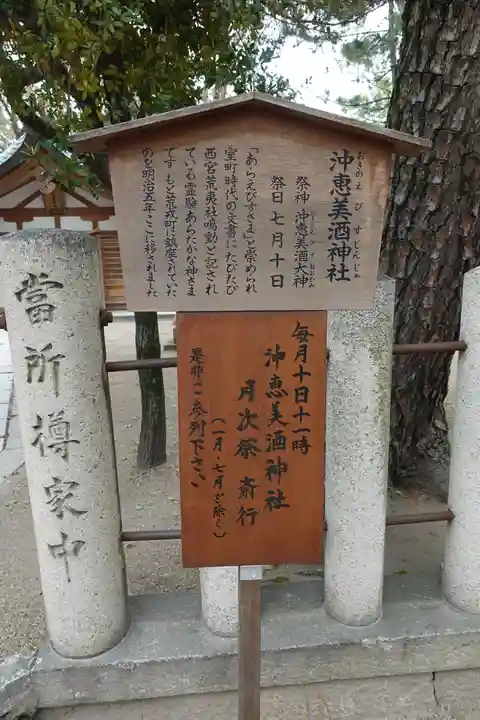 沖恵美酒神社
おきのえびすじんじゃ
祭神 沖恵美酒大神
祭日 七月十日
「あらえびすさま」と崇められ
室町時代の文書にたびたび
西宮荒夷社鳴動と記され
ている霊験あらたかな神さま
です もと荒戎町に鎮座されていた
のを明治五年ここに移されました
毎月十日十一時
沖恵美酒神社
月次祭 斎行
(一月・七月を除く)
是非ご参列下さい
當所樽家中